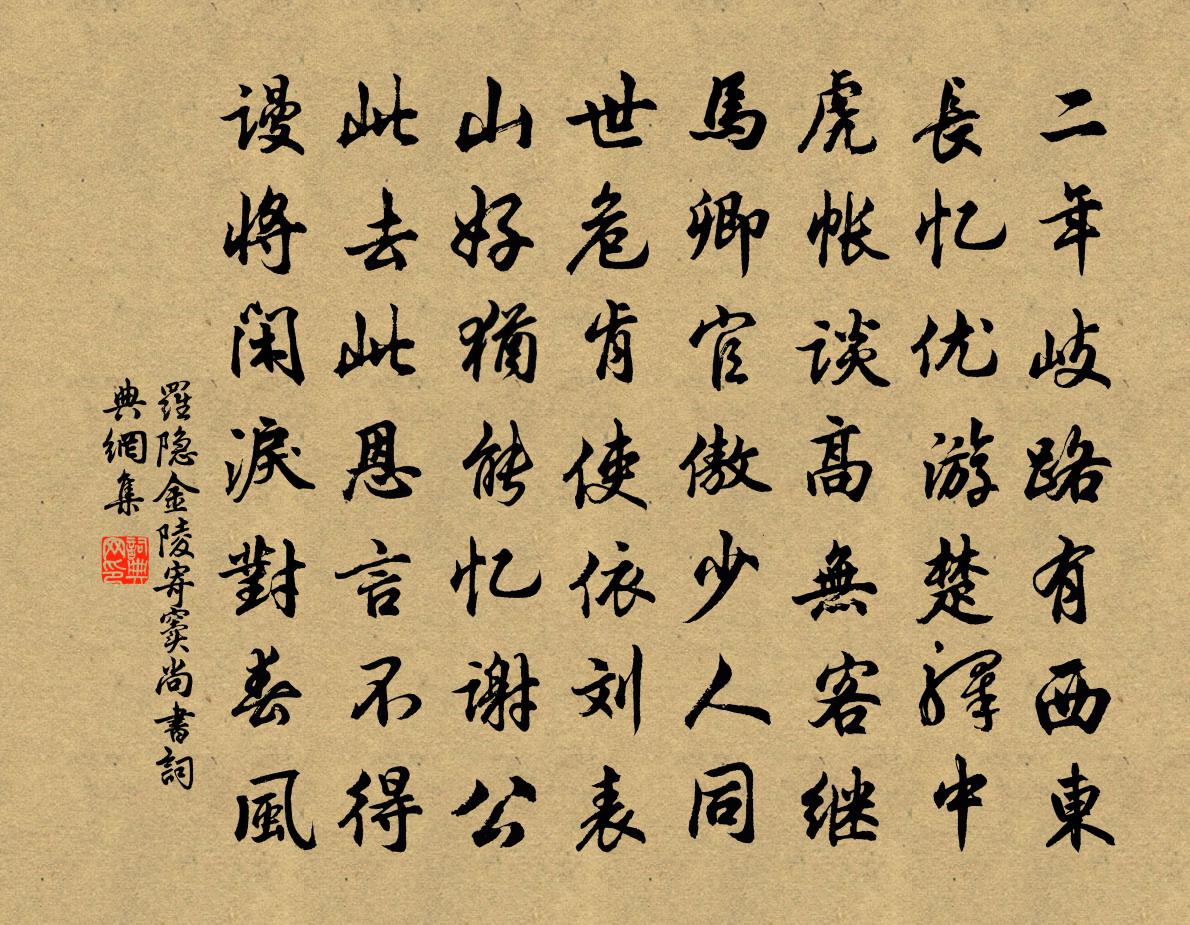 二年岐路有西東
長忆优游楚驛中
虎帐談高無客继
馬卿官傲少人同
世危肯使依刘表
山好猶能忆谢公
此去此恩言不得
谩將閑淚對春風
羅隐金陵寄窦尚書詞
典網集
詞典网印